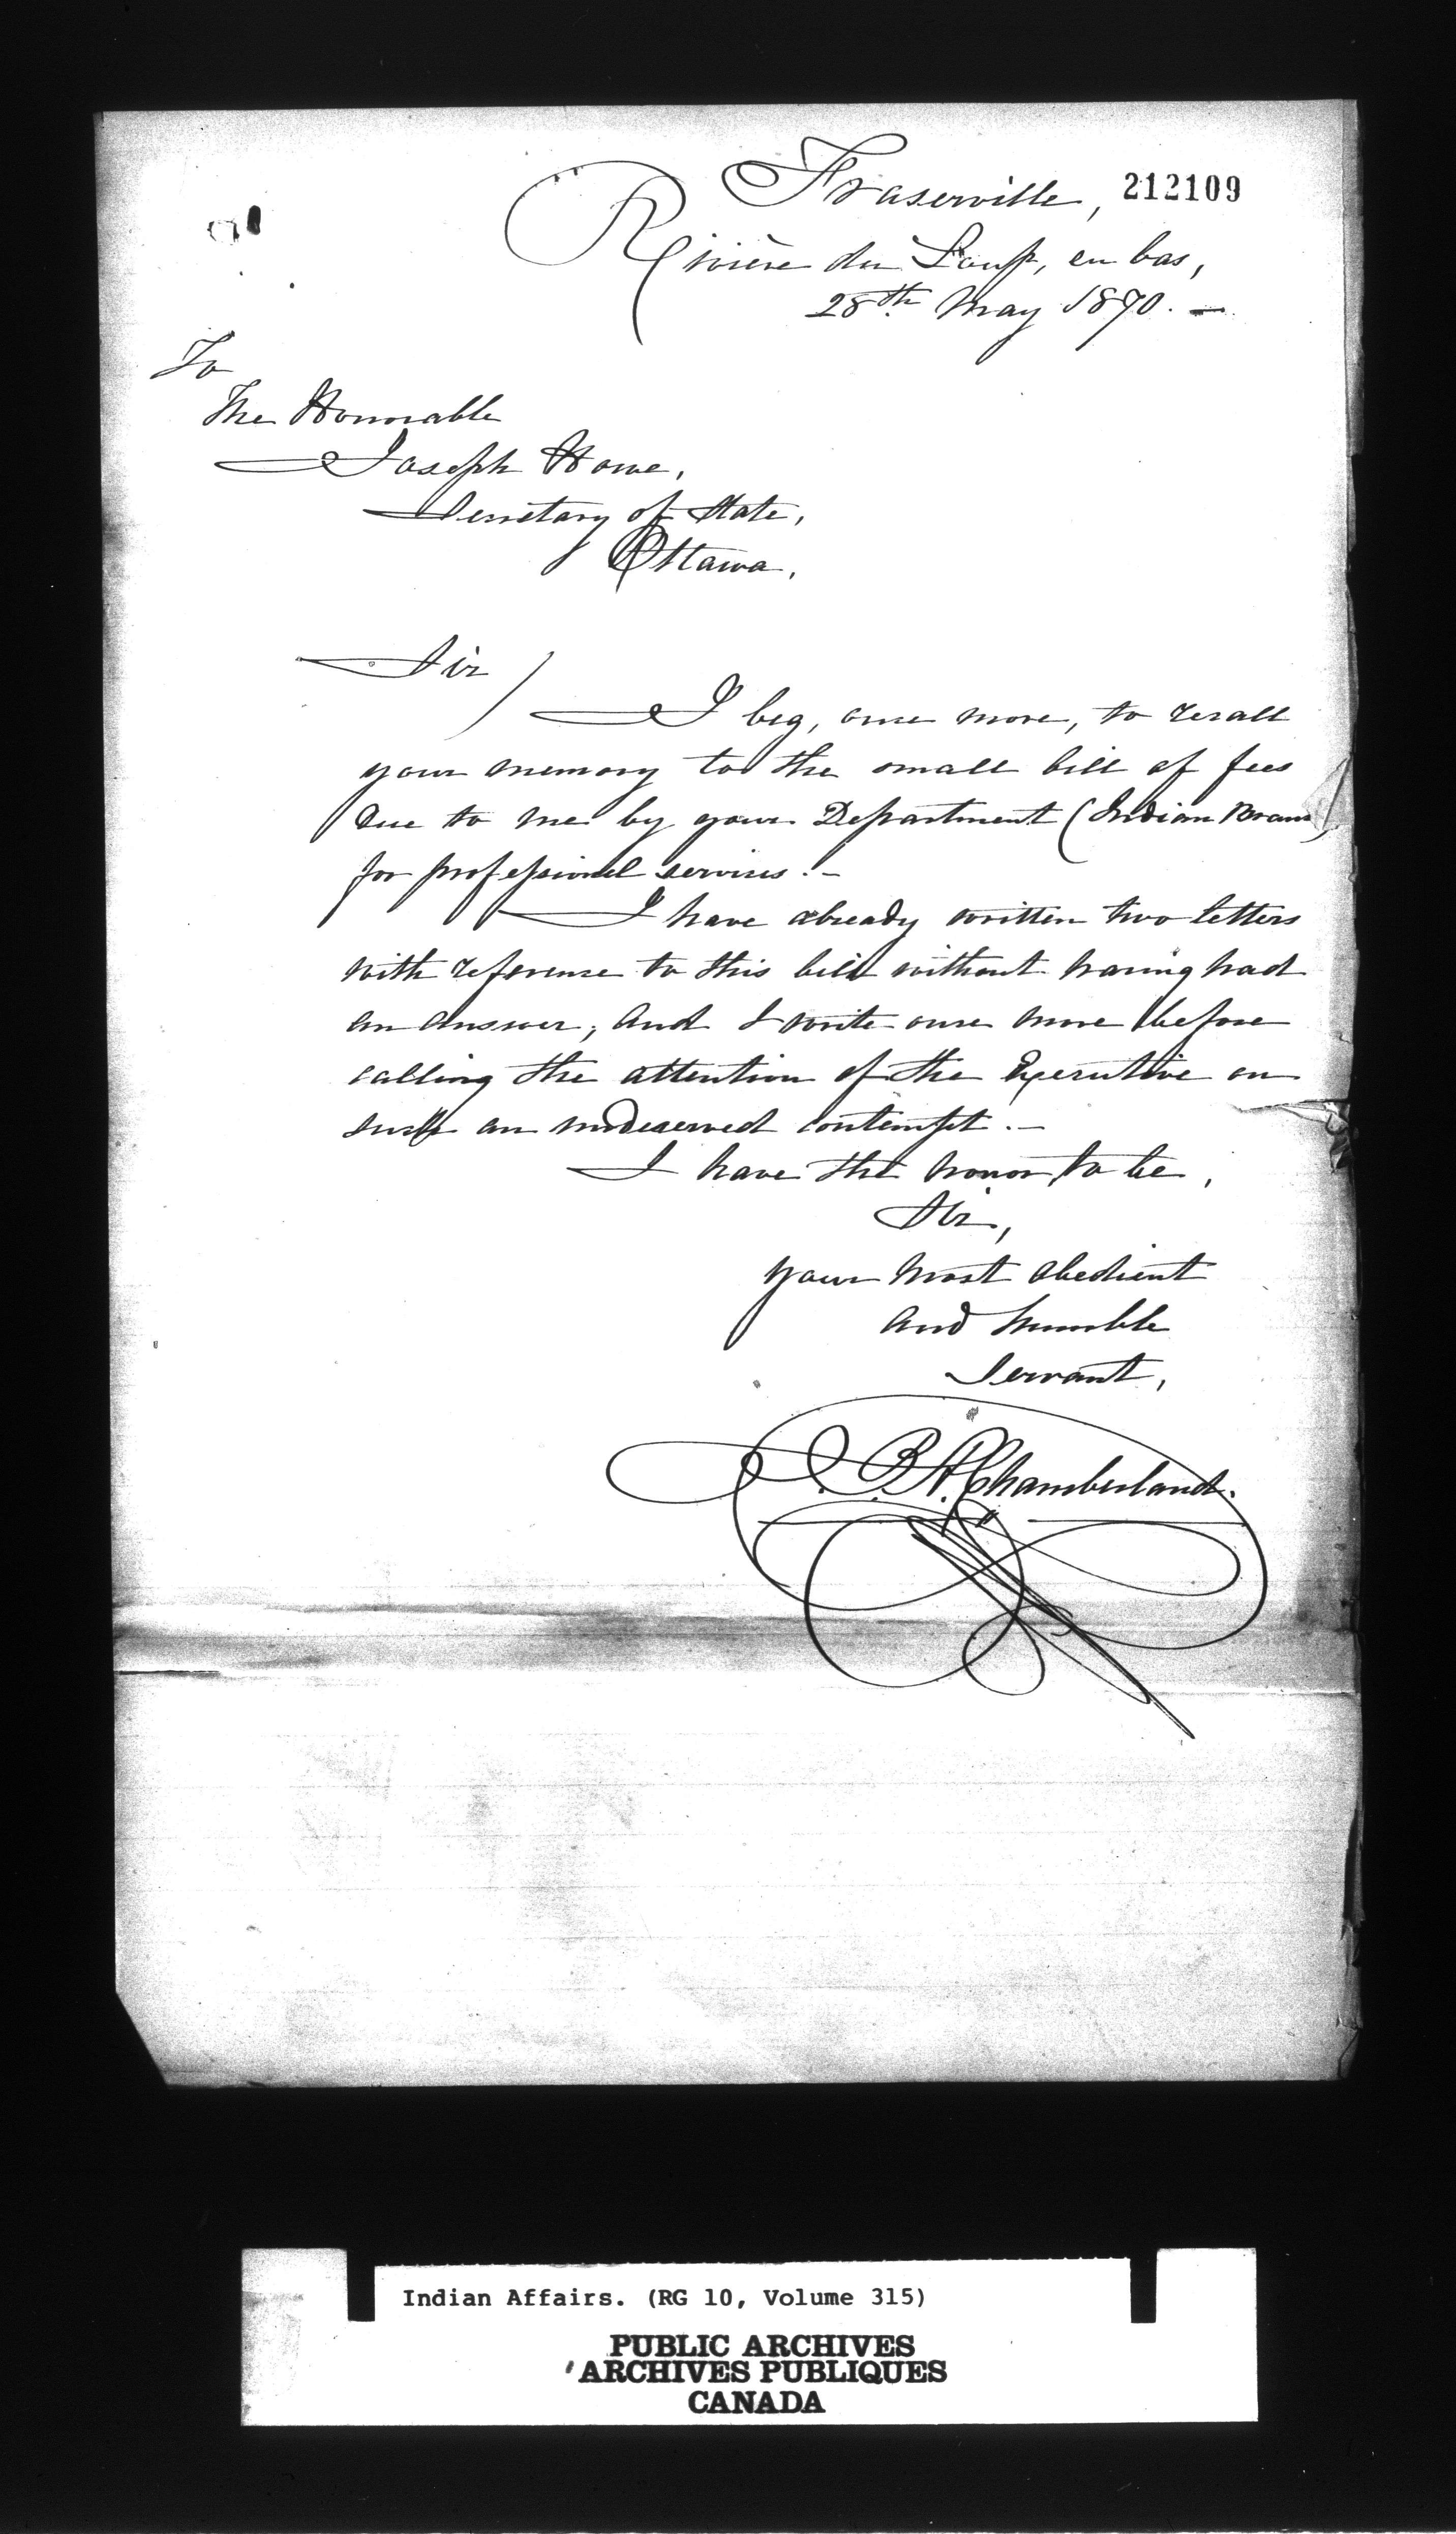 Fraserville, 212109
Rivière du Loup, en bas,
28th May 1870. —
To
The Honorable
Joseph Howe,
Secretary of State,
Ottawa,
Sir /
I beg, once more, to recall
your memory to the small bill of fees
due to me by your Department (Indian Branch)
for professional services. —
I have already written two letters
with reference to this bill without having had
an answer; and I write once more before
calling the attention of the Executive on
such an undeserved contempt. —
I have the honor to be,
Sir,
your most obedient
and humble
Servant,
J. B. A. Chamberland.
Indian Affairs. (RG 10, Volume 315)
PUBLIC ARCHIVES
ARCHIVES PUBLIQUES
CANADA